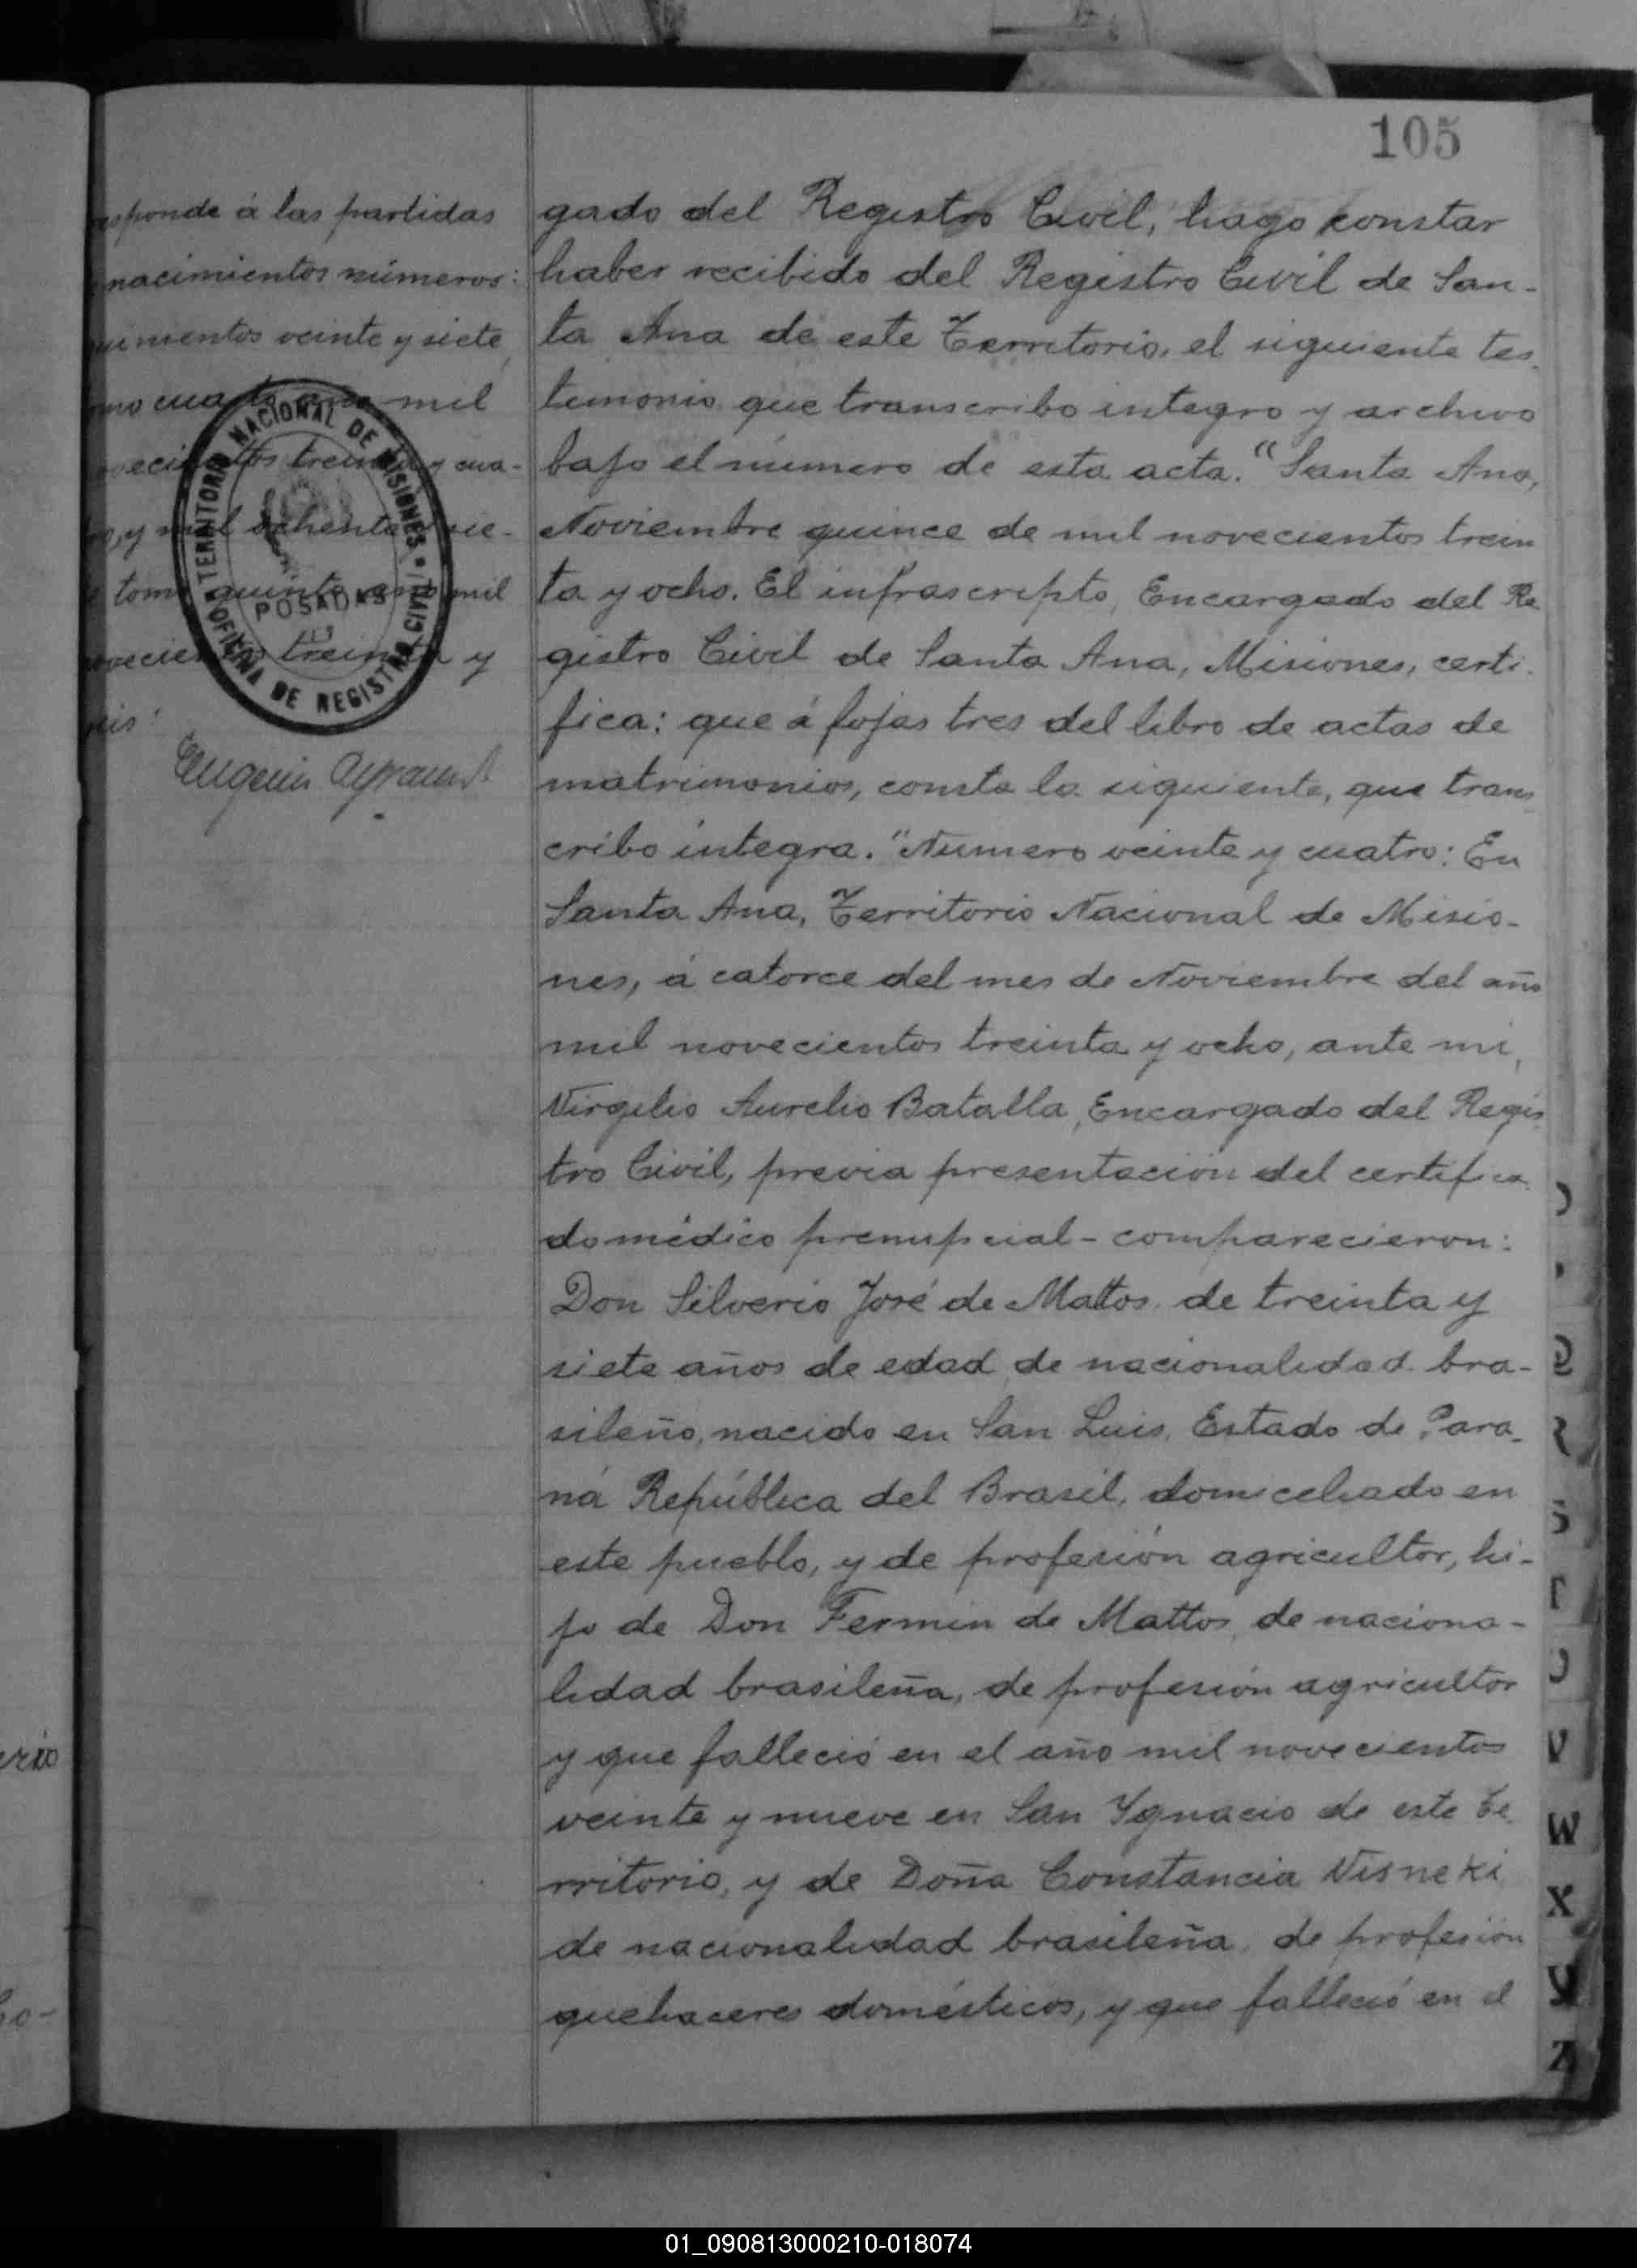 105
esponde á las partidas
nacimientos números:
nientos veinte y siete,
mo cuarto año mil
vecientos treinta y cua-
y mil ochenta y sie-
tomo quinto año mil
ovecientos treinta y
eis:
TERRITORIO NACIONAL DE MISIONES
POSADAS
OFICINA DE REGISTRO CIVIL
Eugenio
gado del Registro Civil, hago constar
haber recibido del Registro Civil de San-
ta Ana de este Territorio, el siguiente tes
timonio que transcribo integro y archivo
bajo el número de esta acta. "Santa Ana,
Noviembre quince de mil novecientos trein
ta y ocho. El infrascripto, Encargado del Re
gistro Civil de Santa Ana, Misiones, certi-
fica: que á fojas tres del libro de actas de
matrimonios, consta la siguiente, que trans
cribo íntegra. "Numero veinte y cuatro: En
Santa Ana, Territorio Nacional de Misio-
nes, á catorce del mes de Noviembre del año
mil novecientos treinta y ocho, ante mi,
Virgilio Aurelio Batalla, Encargado del Regis
tro Civil, previa presentación del certifica
do médico prenupcial - comparecieron:
Don Silverio José de Mattos, de treinta y
siete años de edad, de nacionalidad bra-
sileño, nacido en San Luis, Estado de Para-
ná República del Brasil, domiciliado en
este pueblo, y de profesión agricultor, hi-
jo de Don Fermin de Mattos, de naciona-
lidad brasileña, de profesión agricultor
y que falleció en el año mil novecientos
veinte y nueve en San Ygnacio de este Te
rritorio, y de Doña Constancia Visneki
de nacionalidad brasileña, de profesión
quehaceres domésticos, y que falleció en el
erio
V
W
X
Y
Z
01_090813000210-018074